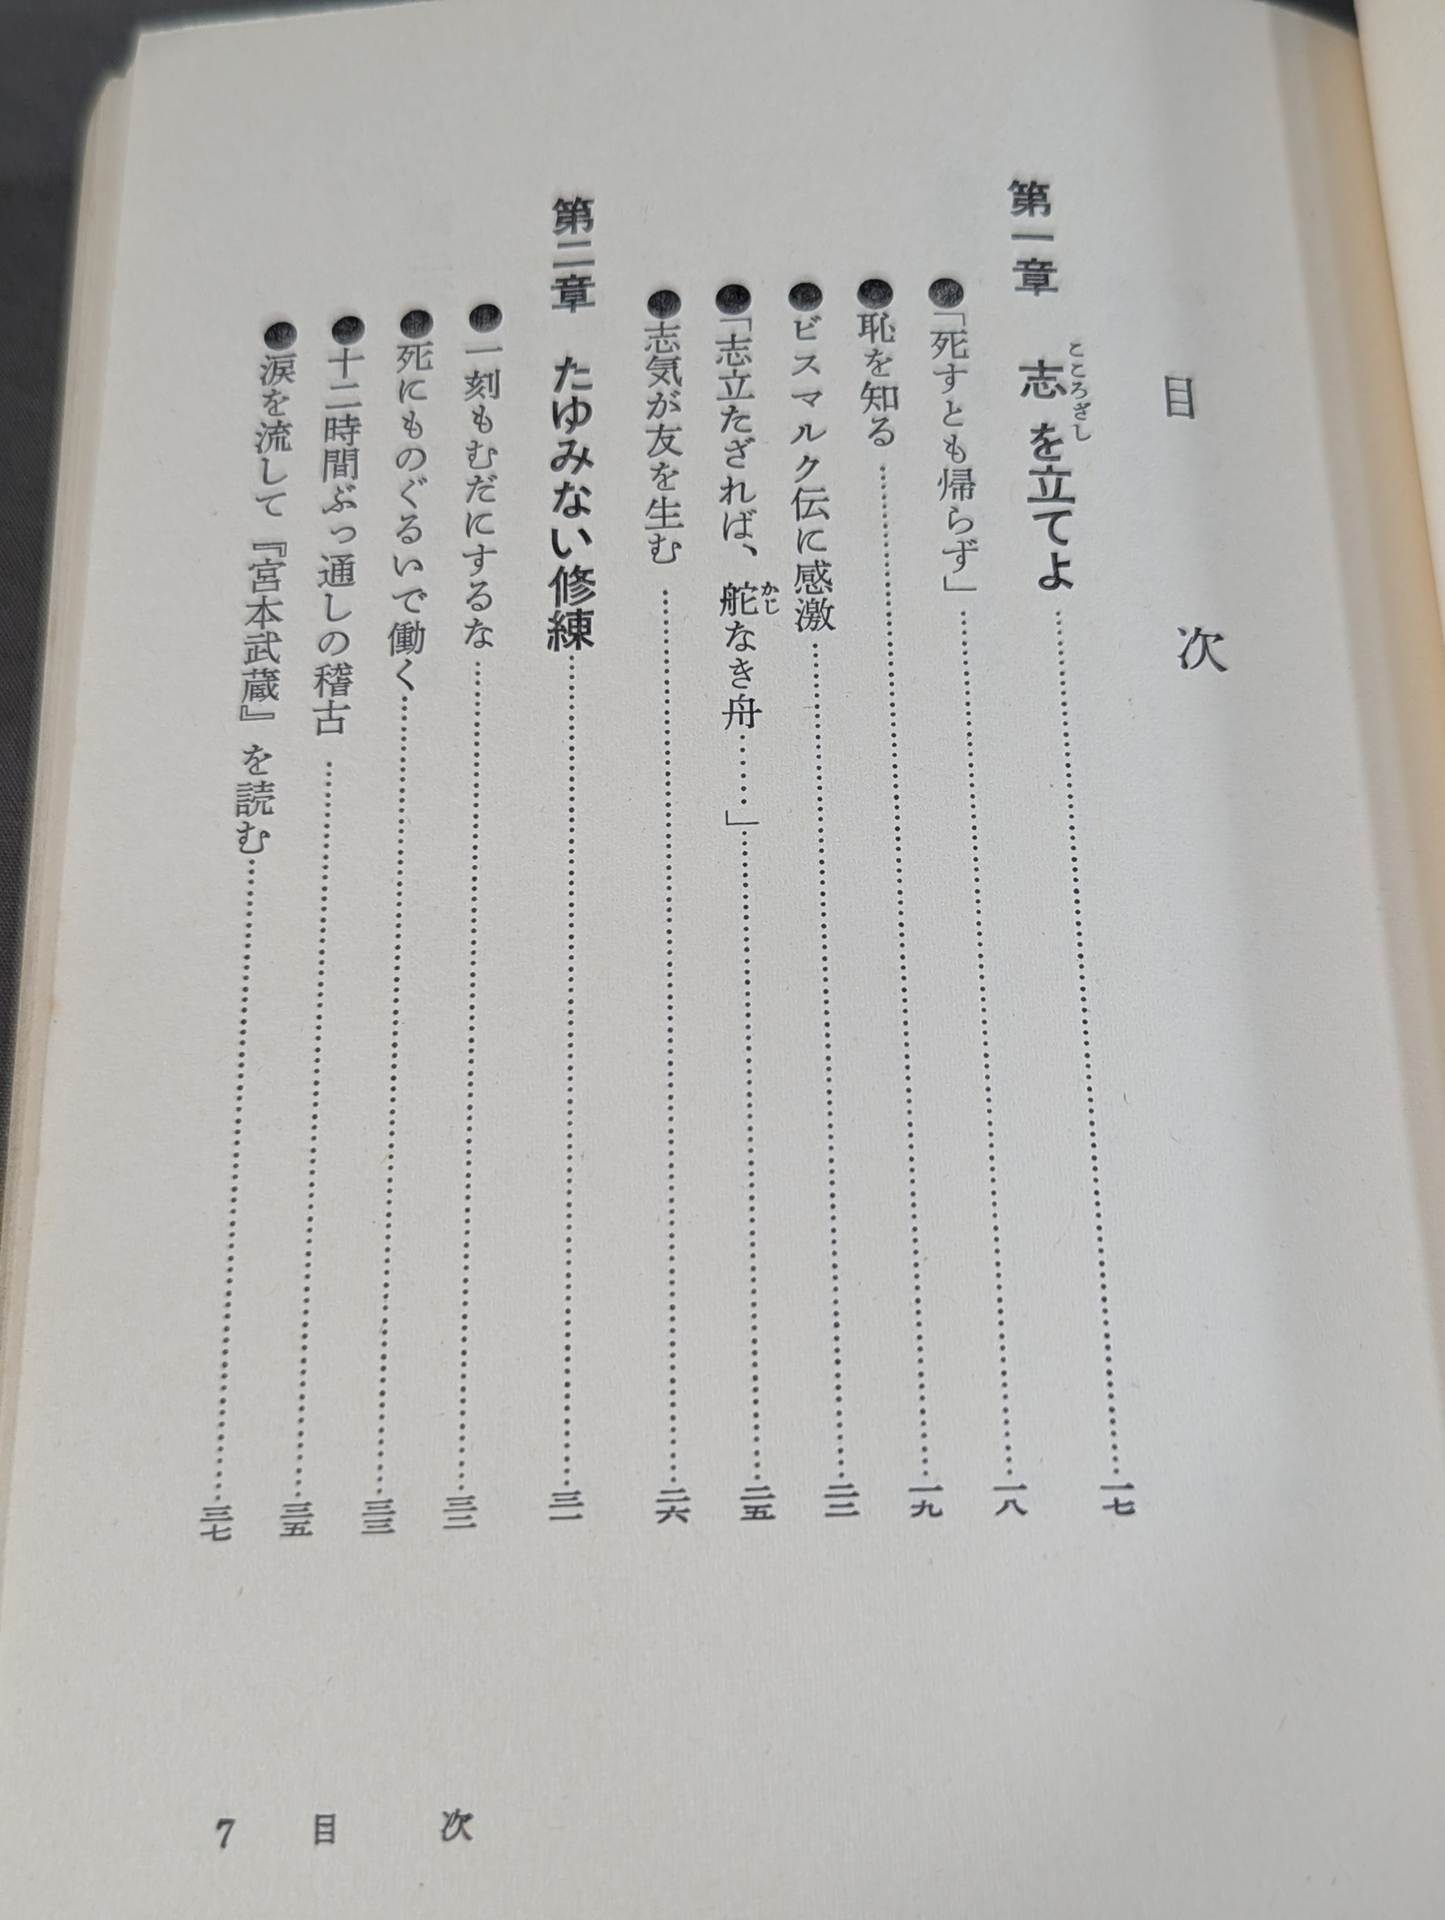 目次
第一章　志を立てよ……一七
こころざし
●「死すとも帰らず」……一八
●恥を知る……一九
●ビスマルク伝に感激……二二
●「志立たざれば、舵なき舟……」……二五
かじ
●志気が友を生む……二六
第二章　たゆみない修練……三一
●一刻もむだにするな……三二
●死にものぐるいで働く……三三
●十二時間ぶっ通しの稽古……三五
●涙を流して『宮本武蔵』を読む……三七
7　目次